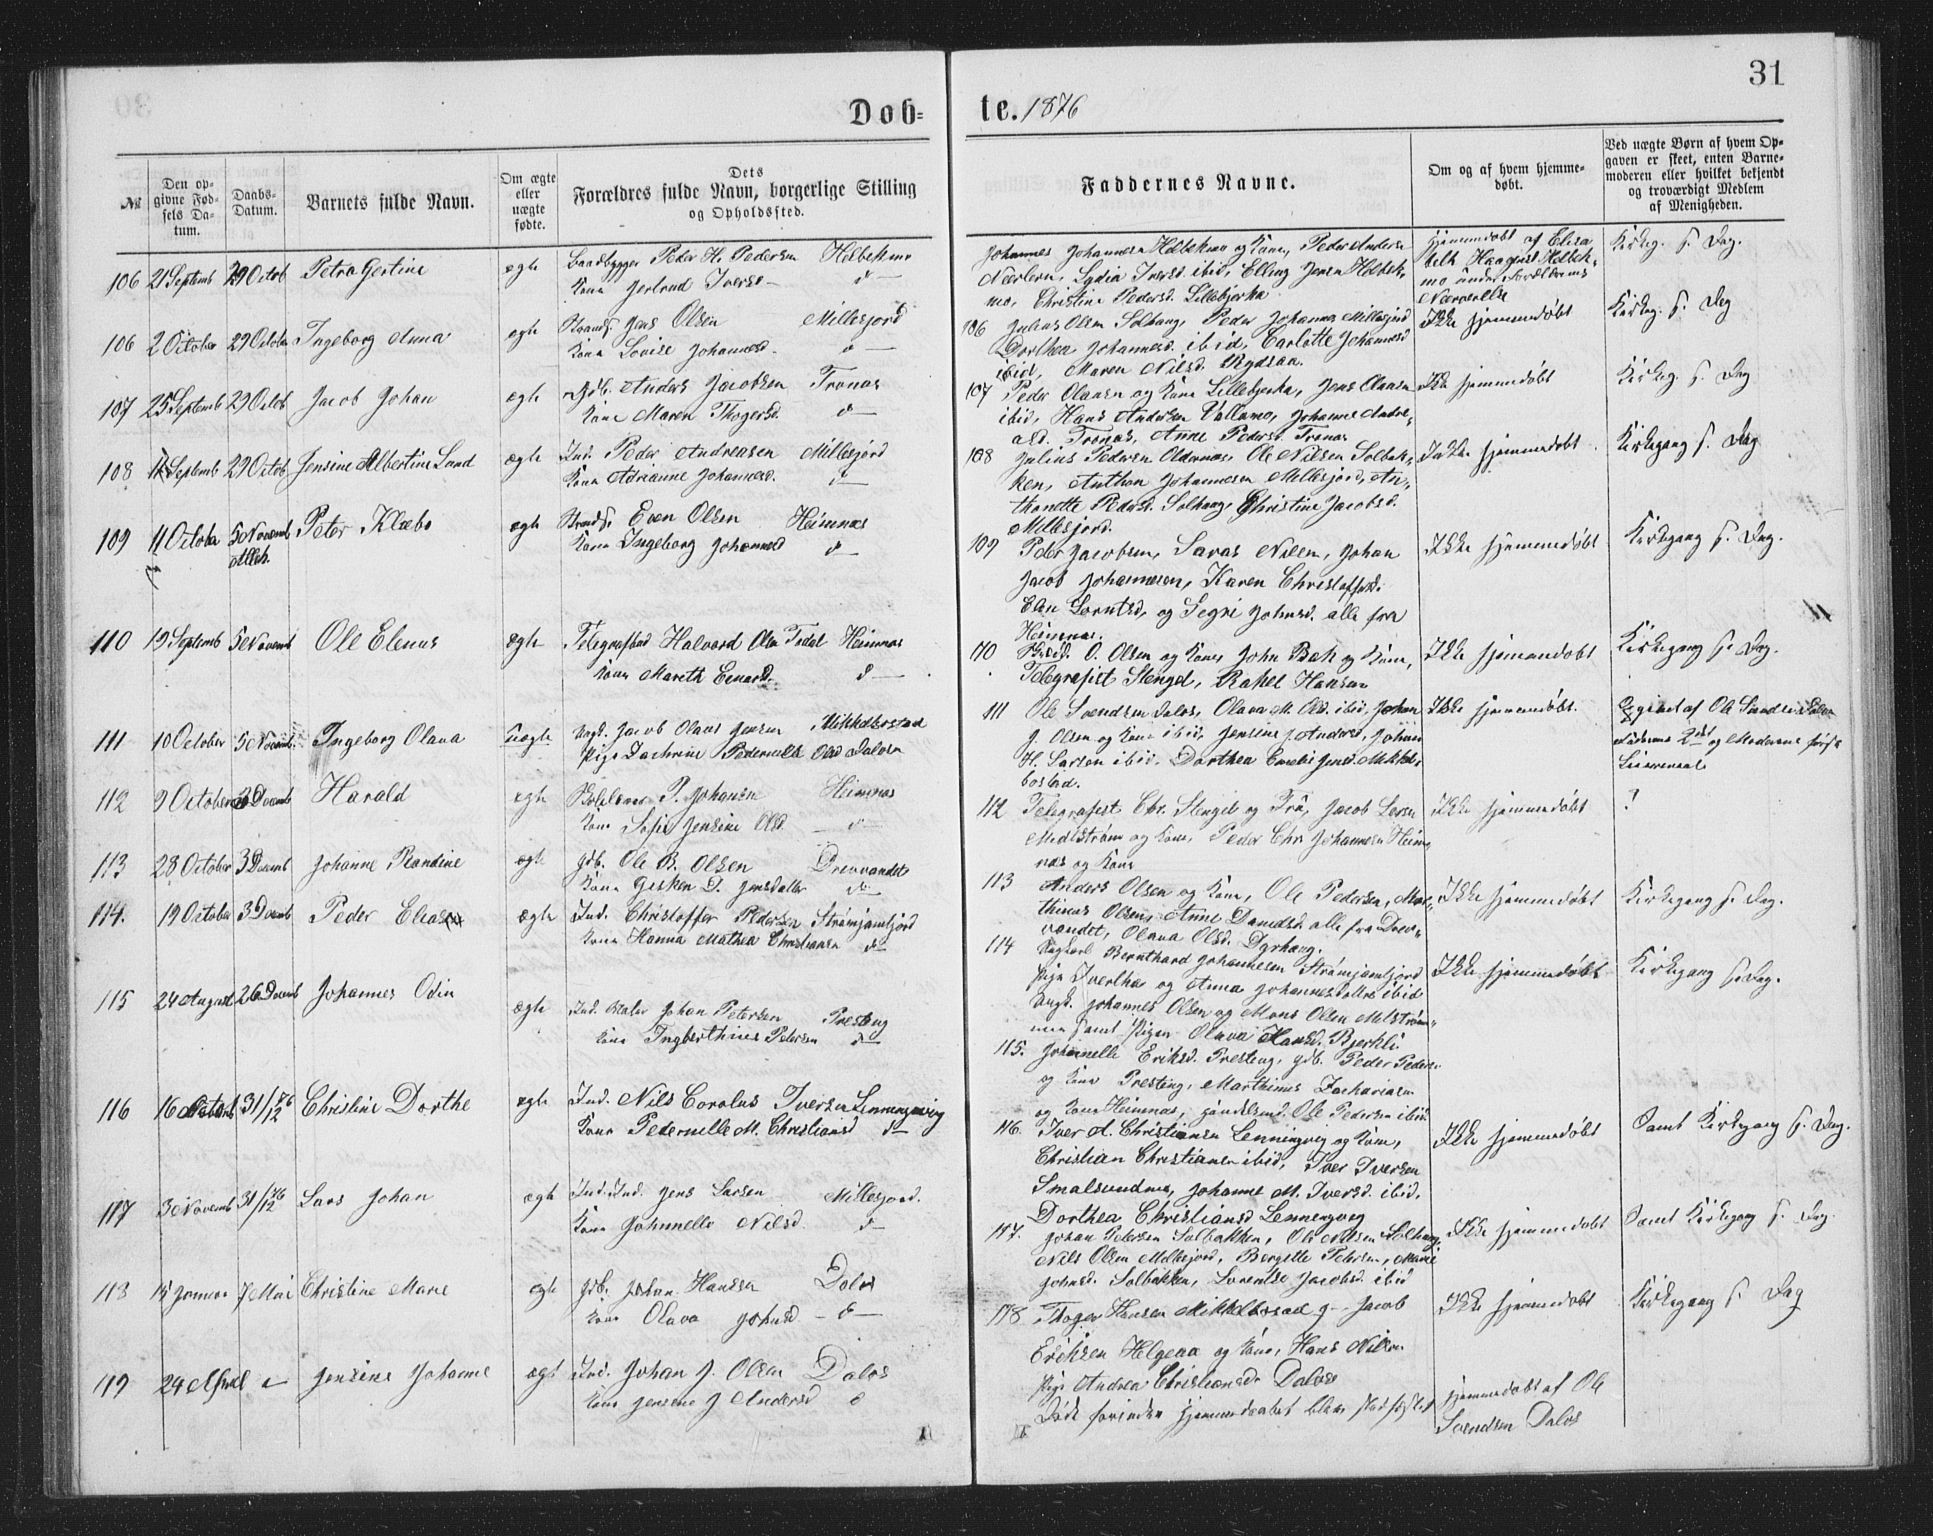 31
Døb=
te. 1876
№
Den op-
givne Fød-
sels Da-
tum.
Daabs-
Datum.
Barnets fulde Navn.
Om ægte
eller
uægte
fødte.
Dets
Forældres fulde Navn, borgerlige Stilling
og Opholdssted.
Faddernes Navne.
Om og af hvem hjemme-
døbt.
Ved uægte Børn af hvem Op-
gaven er skeet, enten Barne-
moderen eller hvilket bekjendt
og troværdigt Medlem
af Menigheden.
106 21 Septemb 29 Octob Petra Gertine ægte Baadbygger Peder H. Pedersen
Kone Jertrud Iversd d
Johannes Johannesen og Kone, Peder Anders
Lydia Iversd ibid, Elling Jensen
Christine Pedersd. Lillebjerka
Hjemmedøbt af Elisa
beth
mo under Forældrenes
Nærverelse
Kirkeg. s. Dag.
106 2 October 29 October Ingeborg Anna ægte Strands. Jens Olsen Millesjord
Kone Louise Johannesd. d
106 Julius Olsen Solhaug, Peder Johannes Millesjord
Dorthea Johannesd. ibid, Carlotte Johannesd
ibid, Maren Nilsd.
Ikke hjemmedøbt
Kirkeg. s. Dag
107 25 Septemb 29 Octob Jacob Johan ægte Gdb. Anders Jacobsen Tronas
Kone Maren Thogersd. d
107 Peder Olausen og Kone Lillebjerka, Jens Olausen
ibid, Hans Andersen Vollamo, Johanne Andre-
asd. Tronas, Anne Pedersd. Tronas
Ikke hjemmedøbt
Kirkeg. s. Dag
108 Septemb 29 Octob Jensine Albertine Lund ægte Ind. Peder Andreasen Millesjord
Kone Adrianne Johannesd. d
108 Julius Pedersen Oldernas, Ole Nilsen Solbak-
ken, Anthon Johannesen Millesjord, An-
thonette Pedersd. Solhaug, Christine Jacobsd.
Millesjord.
Ikke hjemmedøbt.
Kirkegang s. Dag
109 11 October 5 Novemb Peter Klæbo ægte Strands. Even Olsen Heimnas
Kone Ingeborg Johannesd d
109 Peder Jacobsen, Savas Nilsen, Johan
Jacob Johannesen, Karen Christoffersd.
Elen Lorntsd, og Segri Johnsd. alle fra
Heimnas.
Ikke hjemmedøbt
Kirkegang s. Dag.
110 19 Septemb 5 Novemb Ole Elenus ægte Telegrafbud Halvard Olsen Heimnas
Kone Mareth Einarsd. d
110 O. Olsen og Kone, John Bak og Kone,
Telegrafist Stengel, Rakel Hansen
Ikke hjemmedøbt
Kirkegang s. Dag.
111 10 October 5 Novemb Ingeborg Olava uægte Ungk. Jacob Olaus Jensen Mikkelbostad
Pige Zachrine Pedernelle Olsd Dalosen
111 Ole Svendsen Dalos, Olava M. Olsd. ibid, Johan
J. Olsen og Kone ibid, Jensine J Andersd, Johan
H. Larsen ibid. Dorthea Emelie Jensd. Mikkel-
bostad.
Ikke hjemmedøbt.
Opgivet af Ole Svendsen Dalos
Faderens 2det og Moderens første
Leiermaal
112 9 October 3 Decemb Harald ægte P. Johansen Heimnas
Kone Sofie Jensine Olsd. d
112 Telegrafist Chr. Stengel og Frü, Jacob Larsen
Midtstrøm og Kone, Peder Chr Johannesen Heim
nas og Kone
Ikke hjemmedøbt
?
113 28 October 3 Decemb Johanne Randine ægte Gdb. Ole B. Olsen Drevvandet
Kone Gesken D. Jensdatter d
113 Anders Olsen og Kone, Ole Pedersen, Mar-
thinus Olsen, Anne Danielsd. alle fra Drev-
vandet, Olava Olsd. Dyrhaug.
Ikke hjemmedøbt
Kirkegang s. Dag.
114. 19 October 3 Decemb Peder Elias ægte Ind. Christoffer Pedersen Strømjamtjord
Kone Hanna Mathea Christiansen d
114 Ungkarl Bernthard Johannesen Strømjamtjord
Pige Iverthe og Anna Johannesdatter ibid
Ungk. Johannes Olsen og Mons Olsen Melstrøm-
men samt Pigen Olava Hansd. Bjerkli.
Ikke hjemmedøbt
Kirkegang s. Dag.
115 24 August 26 Decemb Johannes Odin ægte Ind. Maler Johan Petersen Presteng
Kone Ingberthine Petersen d
115. Johanelle Eriksd. Presteng, Gdb. Peder Peders
og Kone Presteng, Marthinus Zachariasen
og Kone Heimnas, Handelsmd. Ole Pedersen ibid
116 16 Octob 31/12 76 Christine Dorthe ægte Ind. Nils Corolus Iversen Lenningsvig
Kone Pedernelle M. Christiansd d
116. Iver A. Christiansen Lenningsvig og Kone,
Christian Christiansen ibid, Iver Iversen
Smalsundmo, Johanne M. Iversd. ibid.
Dorthea Christiansd Lenningsvig
Ikke hjemmedøbt
Samt Kirkegang s. Dag.
117 3 Novemb 31/12 76 Lars Johan ægte Ind. Jens Larsen Millesjord.
Kone Johnnelle Nilsd. d
117. Johan Petersen Solbakken, Ole Nilsen Solhaug,
Nils Olsen Millesjord, Bergitte Petersen, Marie
Johnsd. Solbakken, Lorentse Jacobsd. ibid
Ikke hjemmedøbt
Samt Kirkegang s. Dag.
118 15 Januar 7 Mai Christine Marie ægte Gdb. Johan Hansen Dalos
Kone Olava Johnsd d
118 Thoger Hansen Mikkelbostad Jacob
Eriksen Helgeaa og Kone, Hans Nilsen
Pige Andrea Christiansd. Dalos
Ikke hjemmedøbt
Kirkegang s. Dag
119 24 April Jensine Johanne ægte Ind. Johan J. Olsen Dalos
Kone Jensine J Andersd d
Døde forinden Hjemmedaaben blev stadfæstet
Hjemmedøbt af Ole
Svendsen Dalos